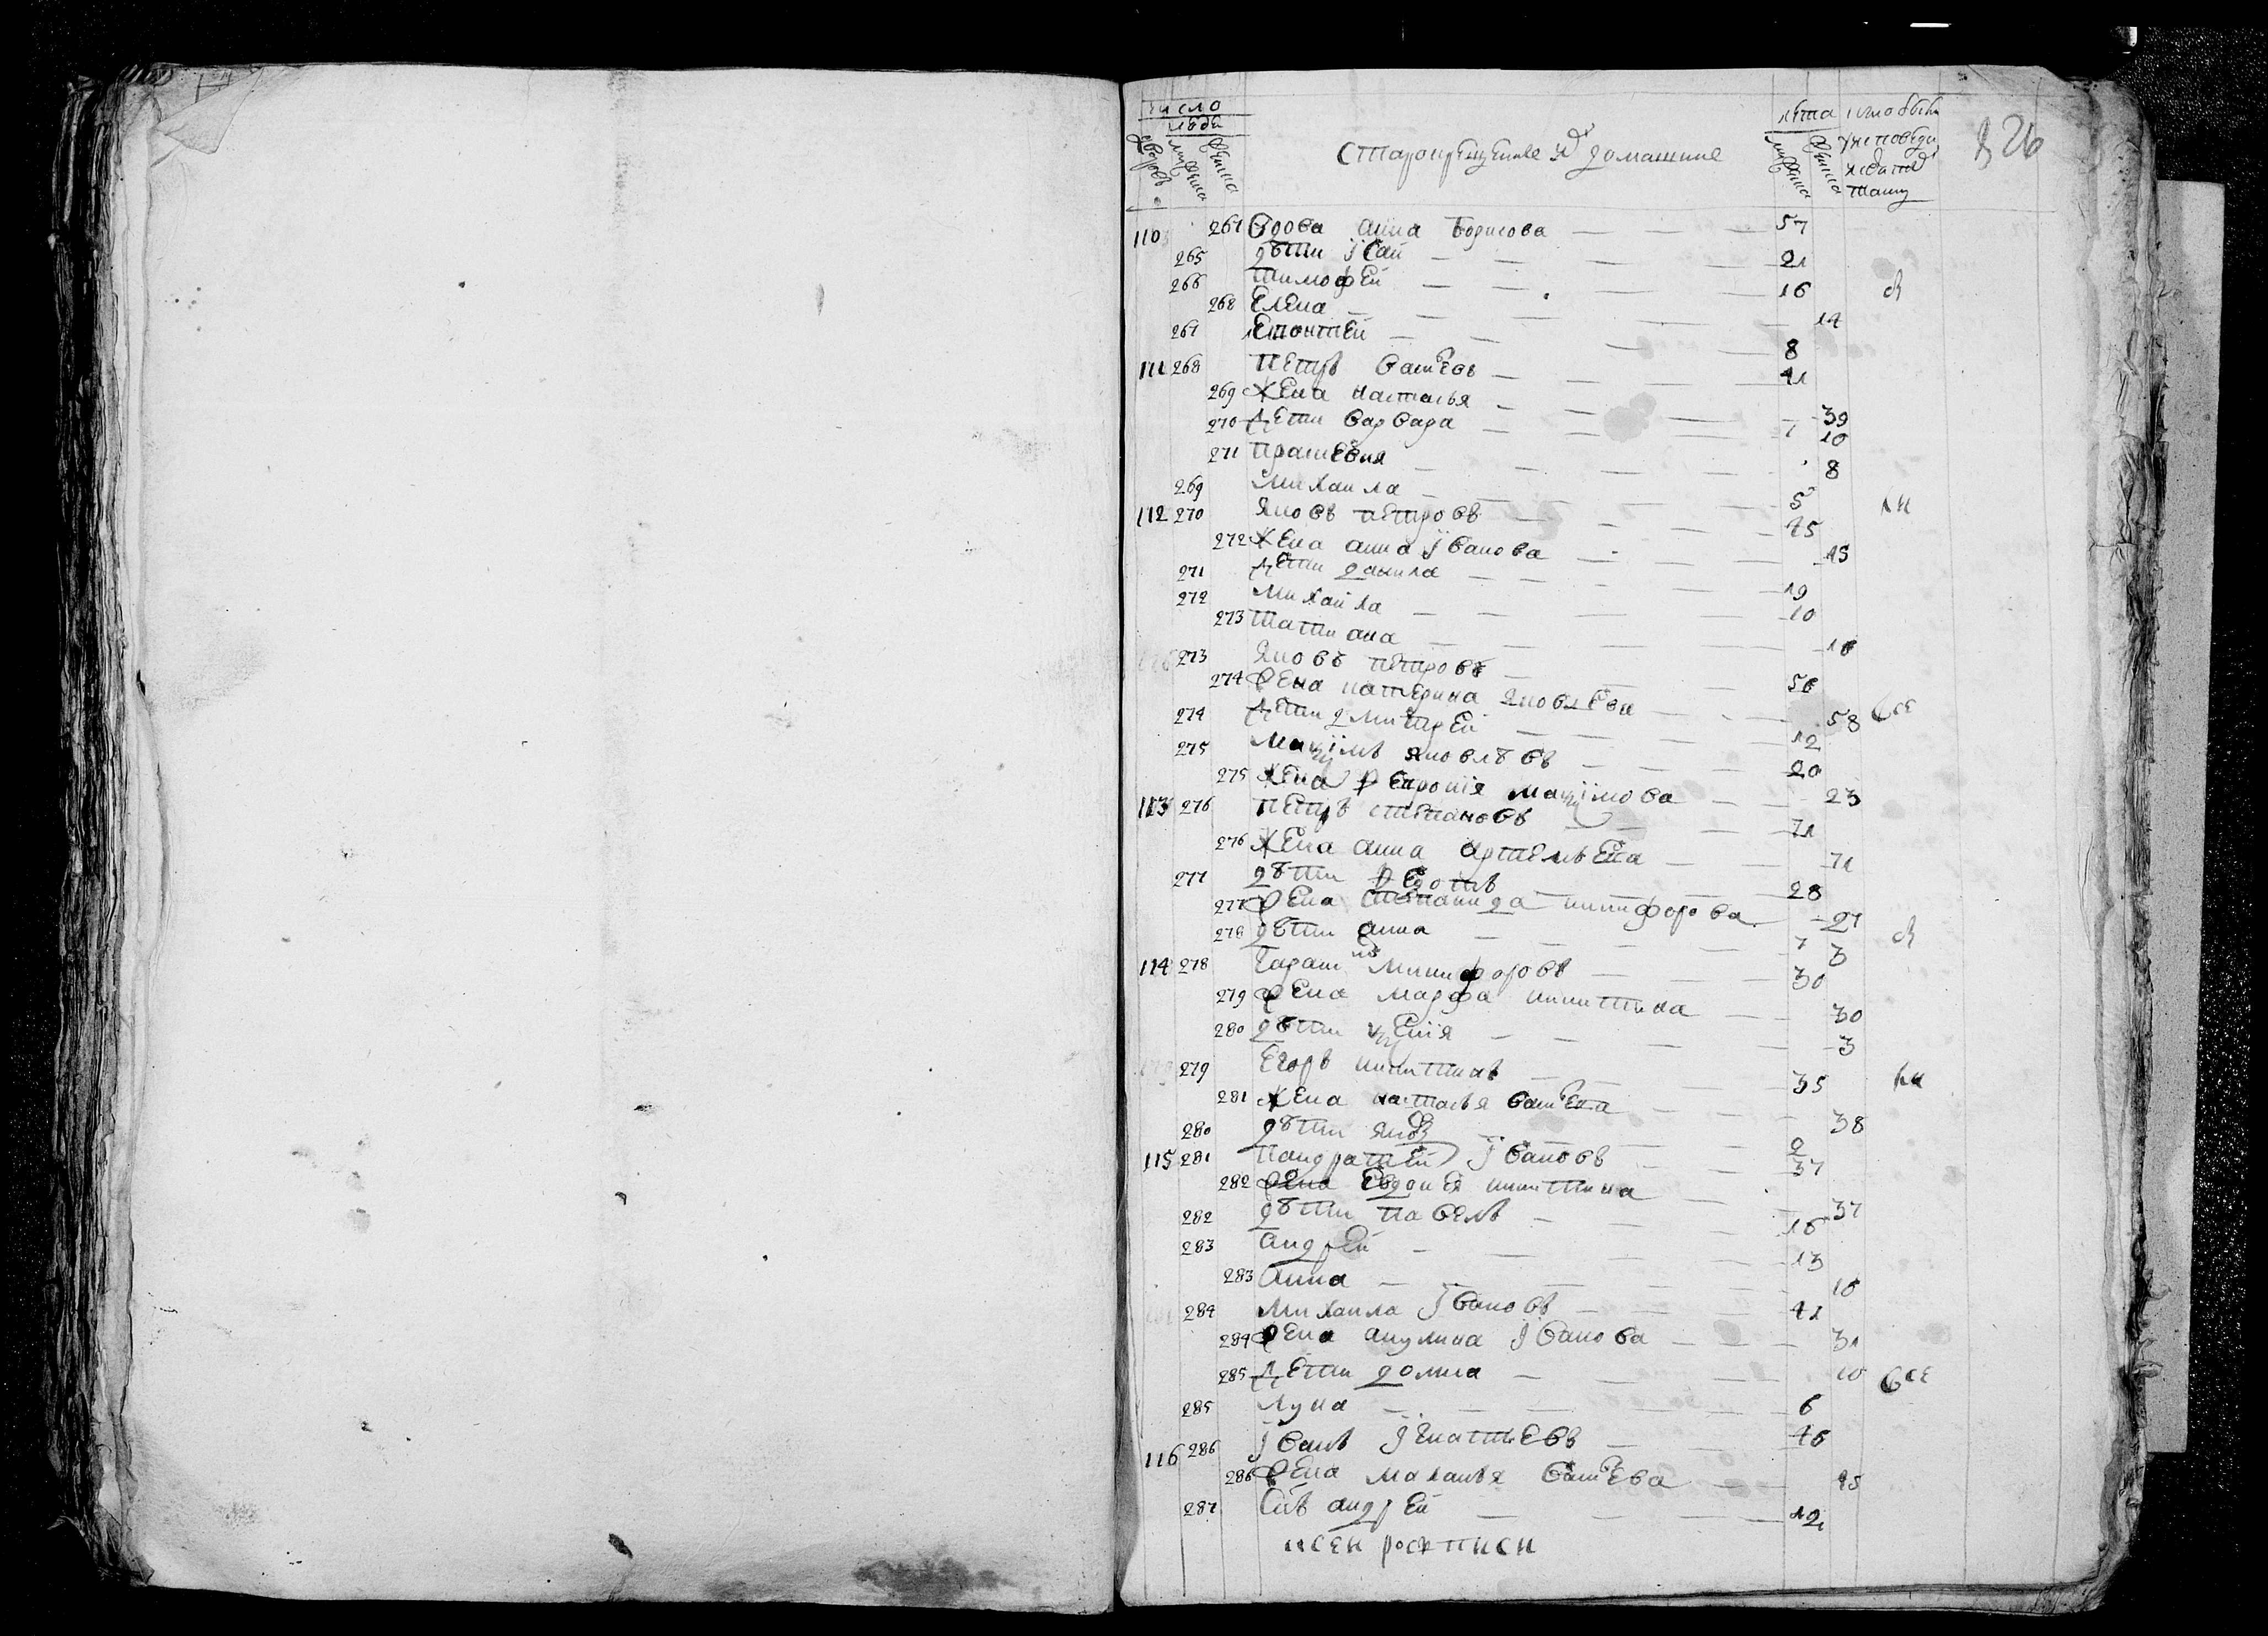 число
людей
лета
826
дворовъ мужеска женска
Старокрещеные и домашние
мужеска женска
110 267 Вдова анна Борисова 57
265 дѣти Iсай 21
266 тимофей 16
268 Елена 14
267 леонтей 8
111 268 петръ Василевъ 41
269 Жена наталья 39
270 дети варвара 10
271 прасковья 8
269 михаила 5
112 270 яковъ петровъ 45
272 Жена анна Iванова 45
271 дети данила 19
272 михайла 10
273 татиана 16
273 яковъ петровъ 56
274 жена катерина яковлева 58 все
274 дети дмитрей 12
275 маѯимъ яковлѣвъ 20
275 жена февронiя маѯiмова 23
113 276 петръ степановъ 71
276 Жена анна артемьева 71
277 дѣти федотъ 28
277 жена степанида никифорова 27
278 дѣти анна 3
114 278 Тарасъ никифоровъ 30
279 жена марфа никитина 30
280 дѣти ѯенiя 3
279 Егоръ никитинъ 35
281 жена наталья василева 38
280 дѣти яковъ 2
115 281 кандратей Iвановъ 37
282 жена Евдокея никитина 37
282 дѣти павелъ 16
283 андрей 13
283 анна 10
284 михаила Iвановъ 41
284 жена акулина Iванова 31
285 дети домна 10 все
285 лука 6
116 286 Iванъ Iгнатьевъ 46
286 жена маланья василева 45
287 Снъ андрей 12
к сеи росписи